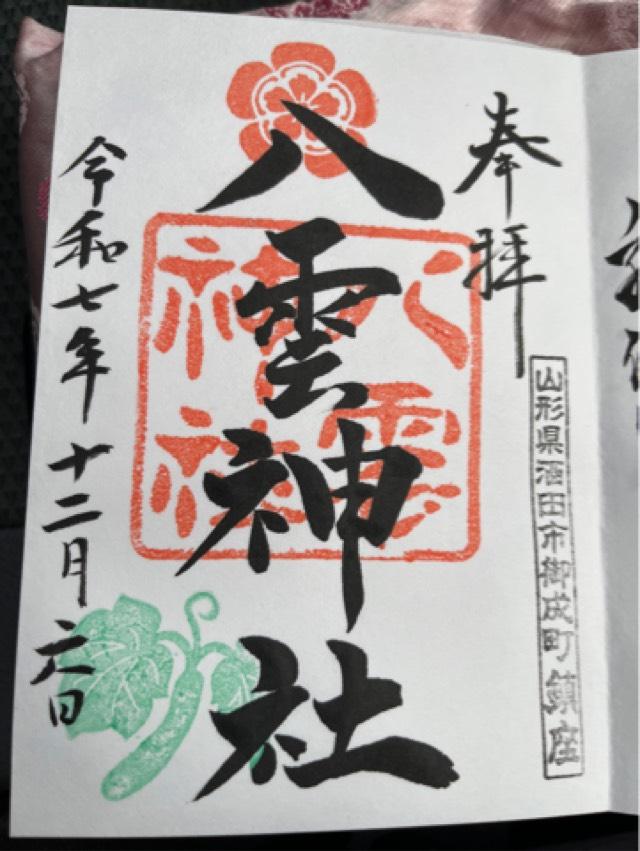 奉拝
山形県酒田市御成町鎮座
八雲神社
八雲
神社
令和七年十二月六日